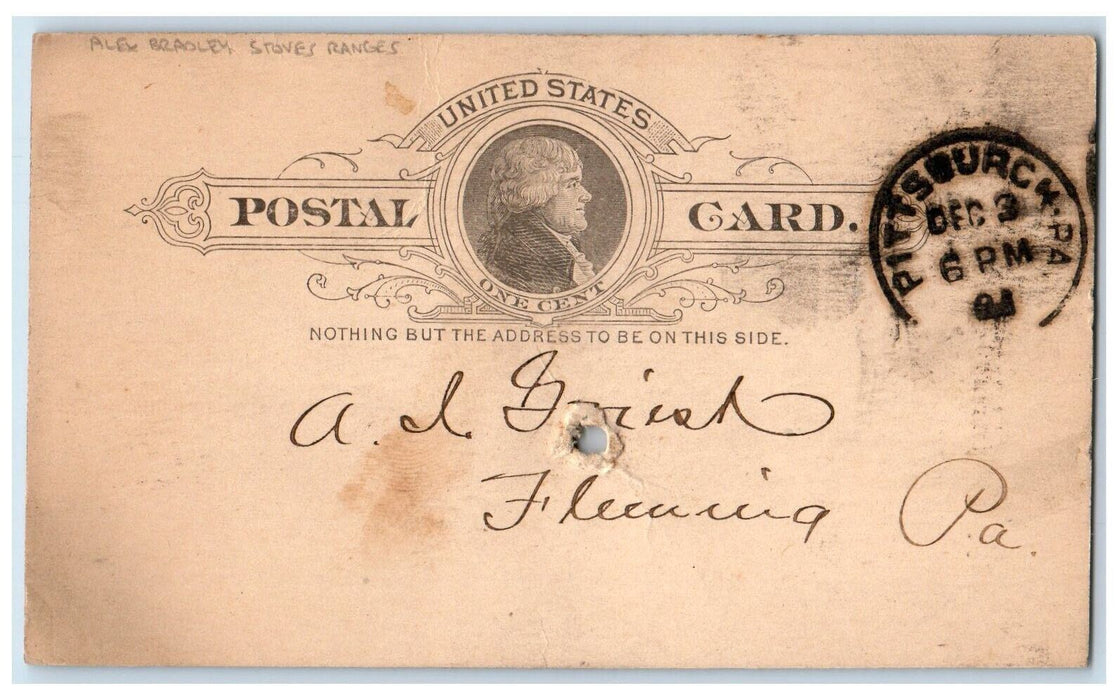 ALEX BRADLEY STOVES RANGES
UNITED STATES
POSTAL CARD.
ONE CENT
NOTHING BUT THE ADDRESS TO BE ON THIS SIDE.
PITTSBURGH, PA
DEC 3
6 PM
A. I. Griest
Fleming Pa.